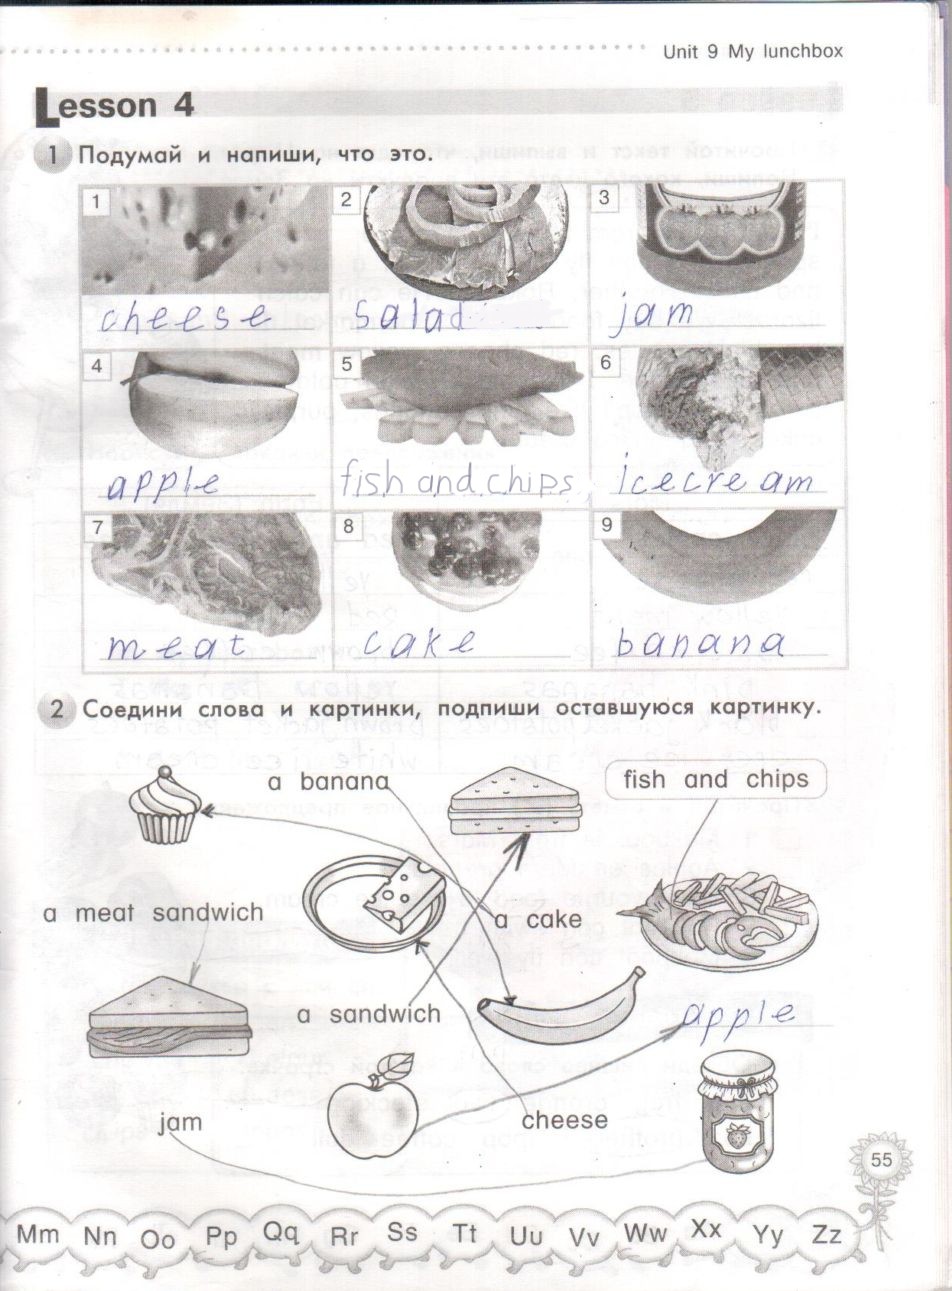 Unit 9 My lunchbox
Lesson 4
1 Подумай и напиши, что это.
1 2 3
cheese salad jam
4 5 6
apple fish and chips icecream
7 8 9
meat cake banana
2 Соедини слова и картинки, подпиши оставшуюся картинку.
a banana fish and chips
a meat sandwich a cake
a sandwich apple
jam cheese
55
Mm Nn Oo Pp Qq Rr Ss Tt Uu Vv Ww Xx Yy Zz